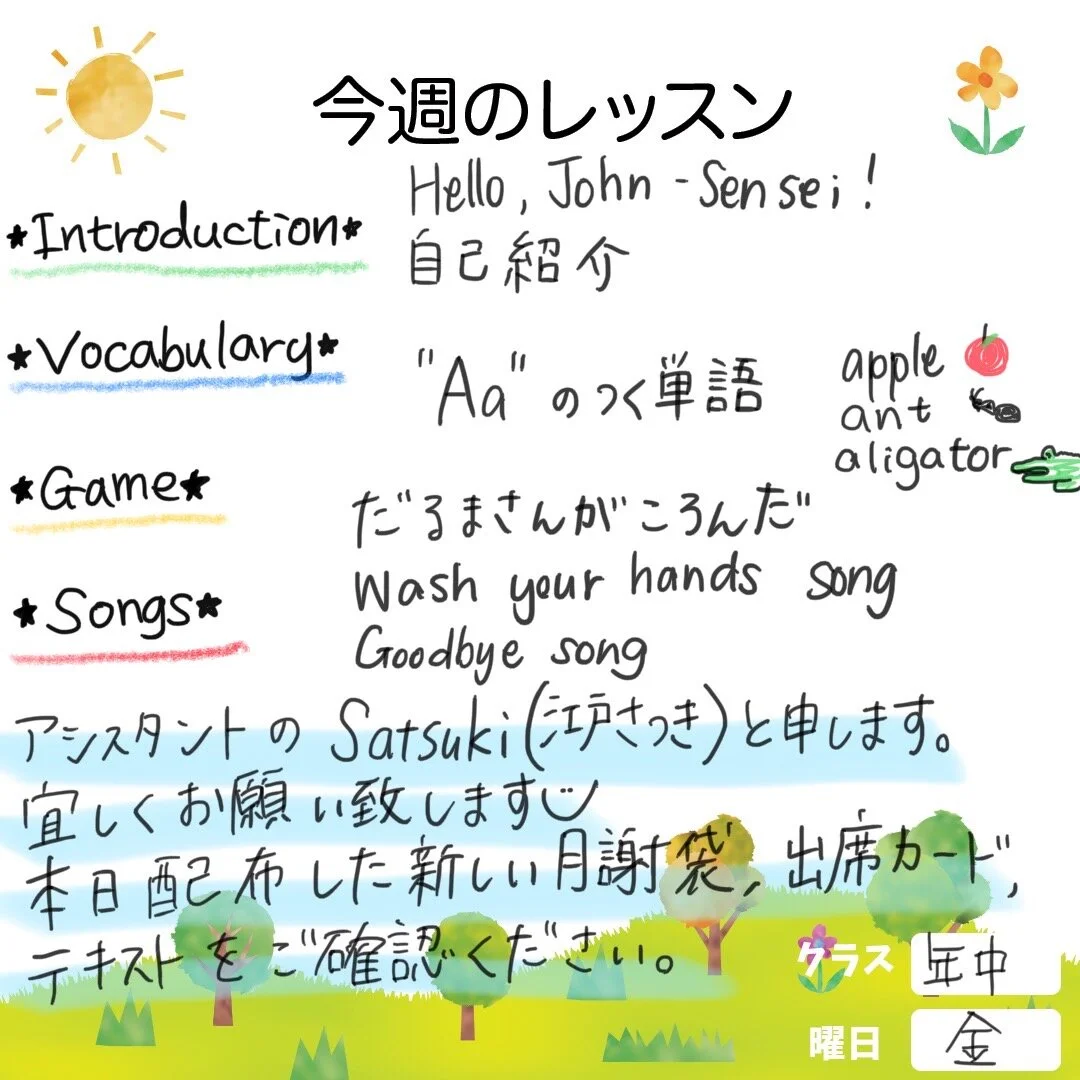 今週のレッスン
★Introduction★
Hello, John-Sensei!
自己紹介
★Vocabulary★
"Aa"のつく単語
apple
ant
aligator
★Game★
だるまさんがころんだ
★Songs★
Wash your hands song
Goodbye song
アシスタントの Satsuki(江戸さつき)と申します。
宜しくお願い致します
本日配布した新しい月謝袋、出席カード、
テキストをご確認ください。
クラス 年中
曜日 金